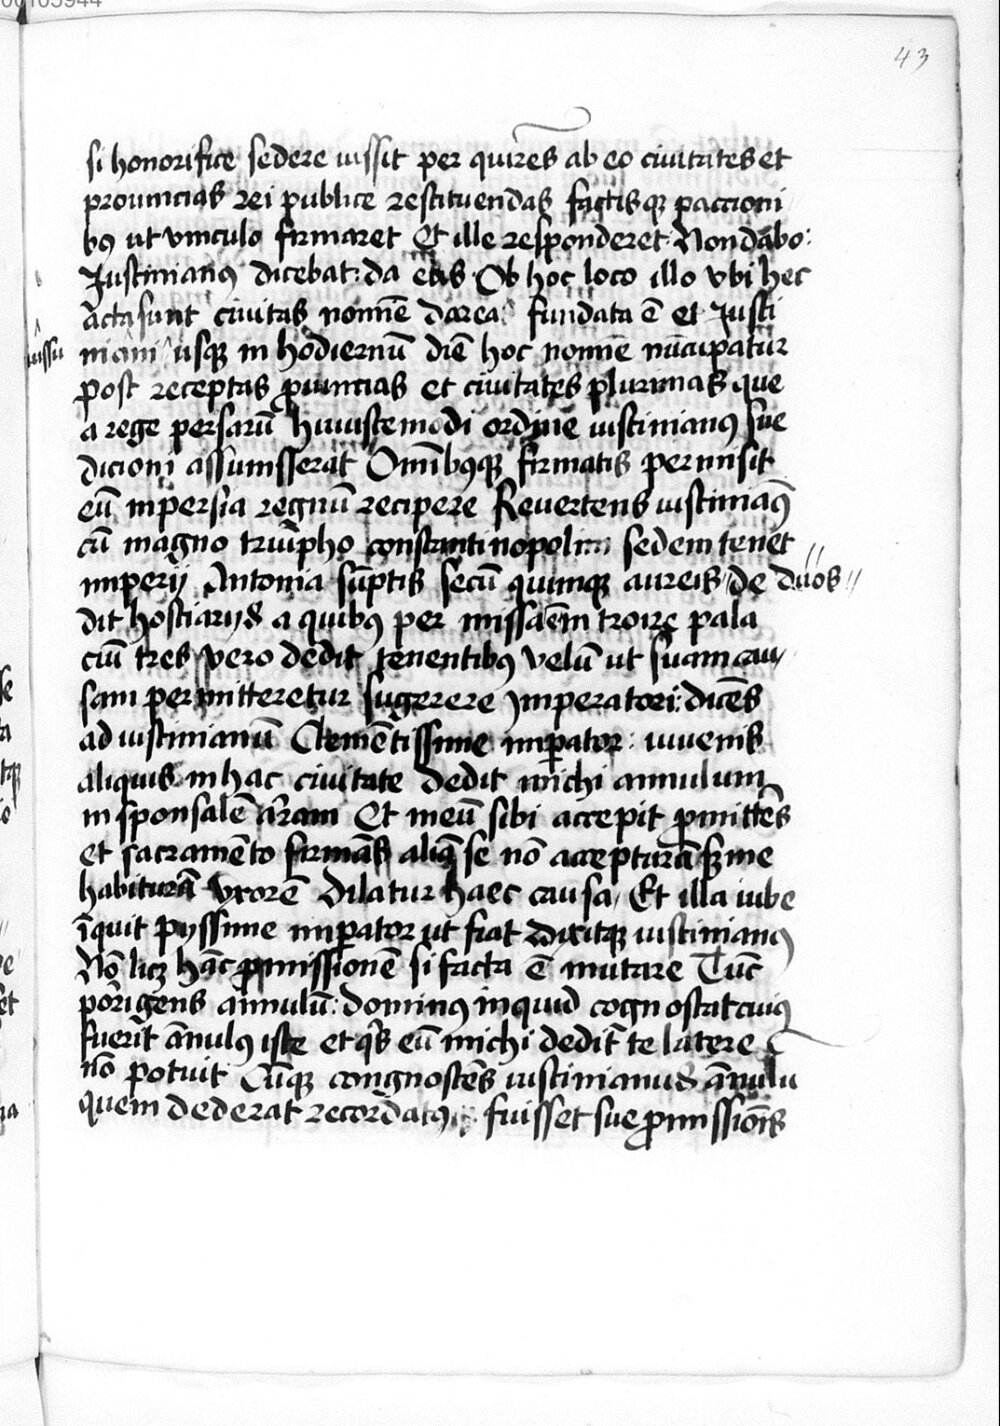 43
si honorifice sedere iussit per quirēs ab eo ciuitates et
prouincias rei publice restituendas factisqꝫ paccioni
bꝰ ut vinculo firmaret Et ille responderet Non dabo:
Iustinianꝰ dicebat: da eris Ob hoc loco illo vbi hec
acta sunt ciuitas nomīe darea fundata ē et Justi
niani usqꝫ in hodiernū diē hoc nomīe nūcupatur
iussu
post receptas ꝓuincias et ciuitates plurimas que
a rege persarū huiuscemodi ordine iustinianꝰ sue
dicioni assumsserat Omībꝰqꝫ firmatis permisit
eū in persia regnū recipere Revertens iustiniāꝰ
cū magno triūpho constantinopolim sedem tenet
imperij Antonia sūptis secū quinqꝫ aureis de duos
dit hostiarijs a quibꝰ per missa ēm troire pala
ciū tres vero dedit tenentibꝰ velū ut suam cau
sam permitteretur sugerere Imperatori: dicēs
ad iustinianū Clemētissime imꝑator: iuuenis
aliquis in hac ciuitate dedit michi annulum
in sponsalē arram Et meū sibi accepit ꝓmittēs
et sacramēto firmās aliā se nō accepturā sꝫ me
habiturā vxorē Dilatur haec causa Et illa iube
īquit pyssime imꝑator ut fiat Dixitqꝫ iustinianꝰ
Nō licꝫ hāc ꝓmissionē si facta ē mutare Tūc
porīgens annulū: dominꝰ inquid cognoscat cuiꝰ
fuerīt ānulꝰ iste et qīs eū michi dedīt te latere
nō potuit Cūqꝫ congnoscēs iustinianus ānulu
quem dederat recordatꝰ fuisset sue ꝓmissiōis